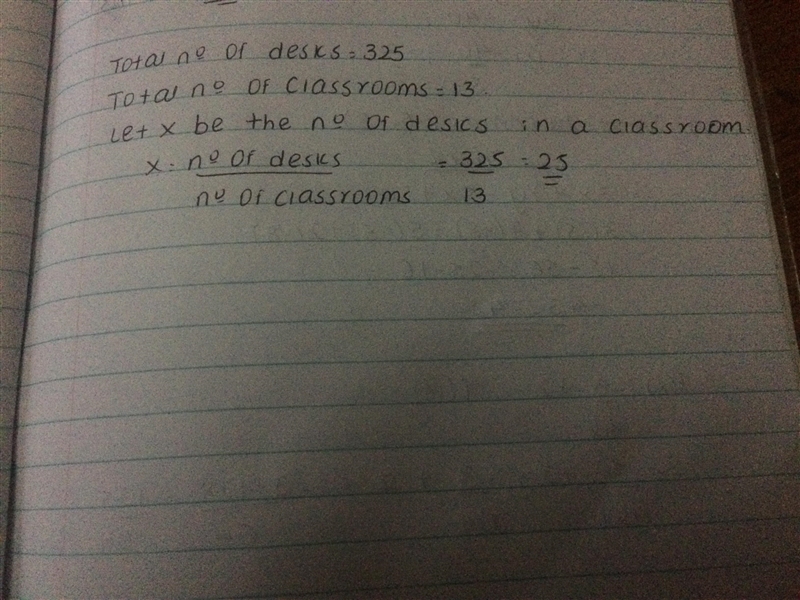 Total nº of desks = 325
Total nº of classrooms = 13.
Let x be the nº of desks in a classroom.
x = nº of desks = 325 = 25
nº of classrooms 13